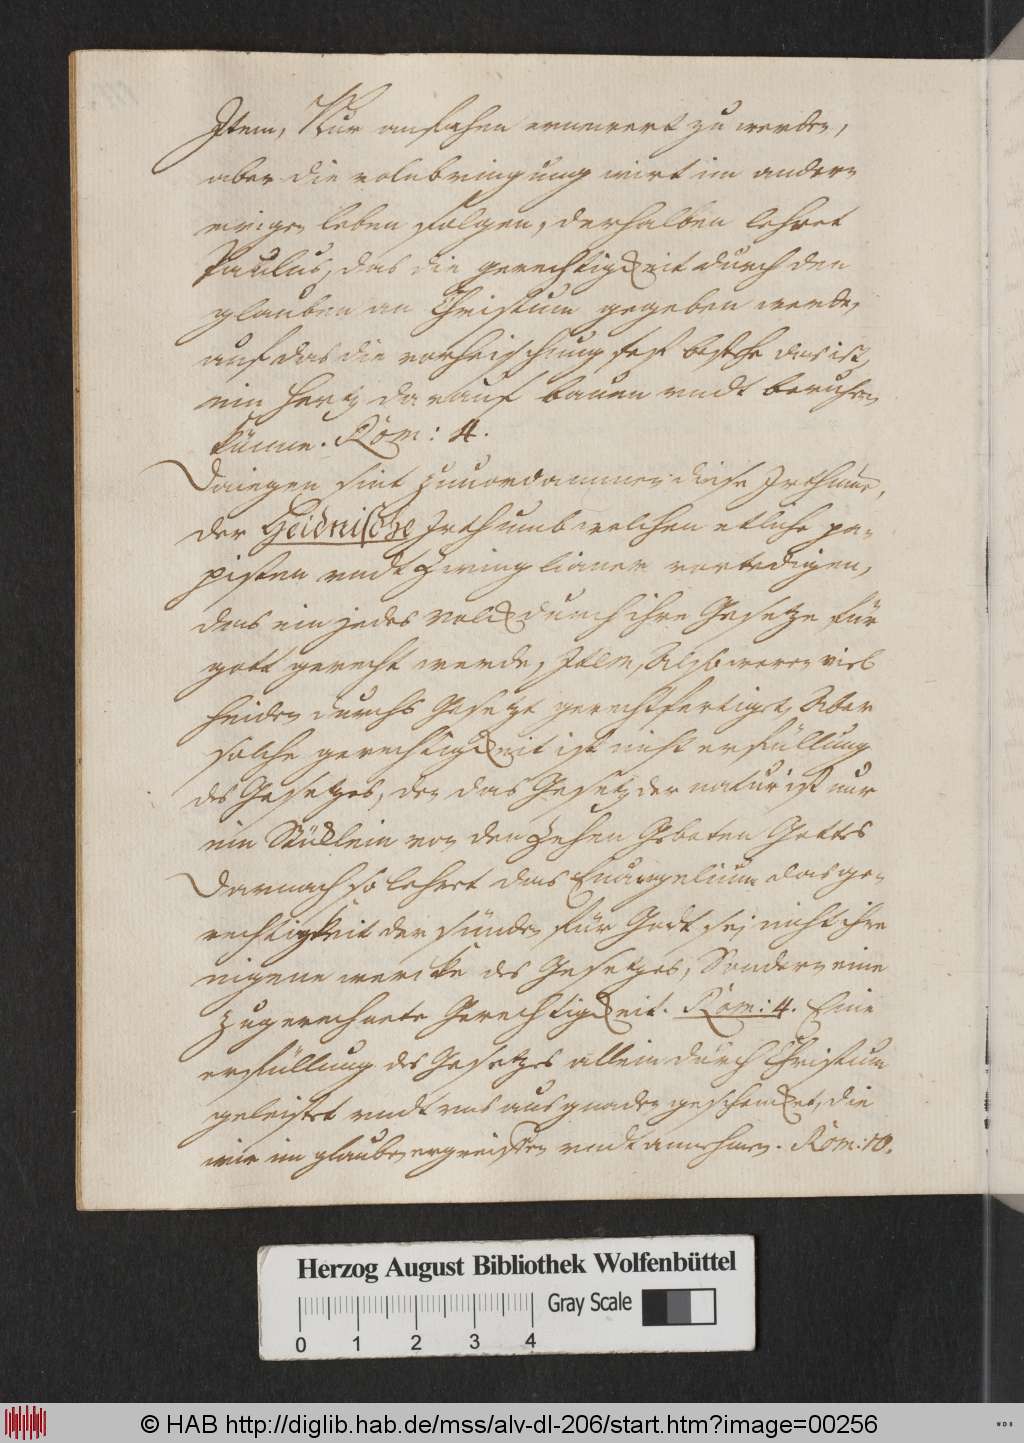 Item, Nur anfahen ernewert zu werden,
aber die volnbringung wirt im andern
ewigen leben folgen, derhalben lehret
Paulus, das die gerechtigkeit durch den
glauben an Christum gegeben werde,
auf das die verheischung fest bestehe das ist,
ein hertz darauf bauen undt beruhen
künne. Röm: 4.
Daiegen sint zuuordammen diese Irthume,
der Heidnische Irthumb welchen etliche pa-
pisten undt Zwinglianer vortedigen,
das ein jedes Volck durch ihre Gesetze für
gott gerecht werde, Item, Also weren viel
heiden durchs Gesetze gerechtfertiget, Aber
solche gerechtigkeit ist nicht erfüllung
des Gesetzes, den das Gesetz der natur ist nur
ein Stüklein von den Zehen Geboten Gottes
Darnach so lehret das Euangelium das ge-
rechtigkeit der sünder für Gott sej nicht ihre
eigene wercke des Gesetzes, Sondern eine
zugerechnete Gerechtigkeit. Röm: 4. Eine
erfüllung des Gesetzes allein durch Christum
geleistet undt uns aus gnaden geschencket, die
wir im glauben ergreiffen undt annehmen. Röm: 10.
Herzog August Bibliothek Wolfenbüttel
Gray Scale
0 1 2 3 4
© HAB http://diglib.hab.de/mss/alv-dl-206/start.htm?image=00256